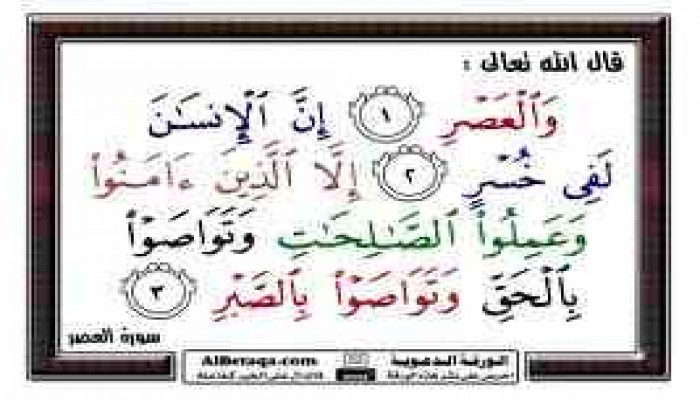 قال الله تعالى :
وَٱلْعَصْرِ ١ إِنَّ ٱلْإِنسَٰنَ
لَفِى خُسْرٍ ٢ إِلَّا ٱلَّذِينَ ءَامَنُوا۟
وَعَمِلُوا۟ ٱلصَّٰلِحَٰتِ وَتَوَاصَوْا۟
بِٱلْحَقِّ وَتَوَاصَوْا۟ بِٱلصَّبْرِ ٣
سورة العصر
البطاقة الدعوية AlBetaqa.com